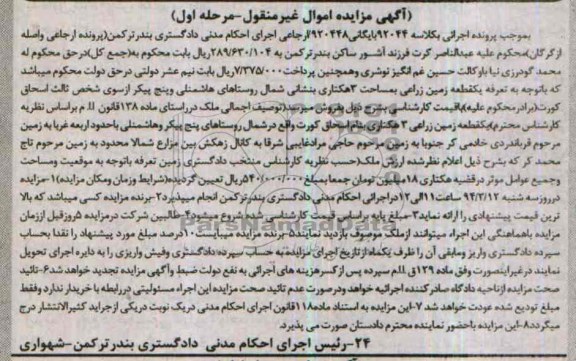 (آگهی مزایده اموال غیرمنقول-مرحله اول)
بموجب پرونده اجرائی بکلاسه ۹۲۰۴۴بایگانی۹۲۰۴۴۸ارجاعی اجرای احکام مدنی دادگستری بندرترکمن(پرونده ارجاعی واصله
از گرگان)محکوم علیه عبدالناصر کرت فرزند آشور ساکن بندرترکمن به ۲۸۹/۶۳۰/۱۰۴ریال بابت محکوم به(جمع کل)درحق محکوم له
محمد گودرزی نیا باوکالت حسین غم انگیز توشری وهمچنین پرداخت۷/۳۷۵/۰۰۰ریال بابت نیم عشر دولتی در حق دولت محکوم میباشد
که باتوجه به تعرفه یکقطعه زمین زراعی بمساحت ۳هکتاری بنشانی شمال روستاهای هاشمنلی وپنج پیکر ازسوی شخص ثالث اسحاق
کورت(برادرمحکوم علیه)باقیمت کارشناسی بشرح ذیل بفروش میرسد(توصیف اجمالی ملک درراستای ماده ۱۳۸قانون ا.ا.م براساس نظریه
کارشناس محترم)یکقطعه زمین زراعی ۳هکتاری بنام اسحاق کورت واقع درشمال روستاهای پنج پیکر وهاشمنلی باحدود اربعه غربا به زمین
مرحوم قرباندردی خادمی کر جنوبا به زمین مرحوم حاجی مرادغایبی شرقا به کانال زهکش بین مزارع شمالا محدود به زمین مرحوم تاج
محمد کر که بشرح ذیل اعلام نظرشده ارزش ملک(حسب نظریه کارشناس منتخب دادگستری زمین تعرفه باتوجه به موقعیت ومساحت
وجمیع عوامل موثر درقضیه هکتاری ۱۸میلیون تومان جمعا بمبلغ ۵۴۰/۰۰۰/۰۰۰ریال تعیین گردیده(شرایط وزمان ومکان مزایده)۱-مزایده
درروزسه شنبه ۹۴/۳/۱۲ ساعت۱۱الی۱۲دراجرائی احکام مدنی دادگستری بندرترکمن انجام میپذیرد۲-برنده مزایده کسی میباشد که بالا
ترین قیمت پیشنهادی را ارائه نماید۳-مبلغ پایه براساس قیمت کارشناسی شده شروع میشود۴-طالبین شرکت درمزایده ۵روزقبل اززمان
مزایده باهماهنگی این اجراء میتوانند ازملک موصوف بازدید نمایند۵-برنده مزایده میبایست ۱۰درصد مبلغ مورد پیشنهاد را نقدا بحساب
سپرده دادگستری واریز ومابقی آن را ظرف یکماه ازتاریخ اجرای مزایده به حساب سپرده دادگستری وفیش واریزی را به دایره اجرای تحویل
نمایند درغیراینصورت وفق ماده ۱۲۹ق.ا.ا.م سپرده پس از کسرهزینه های اجرائی به نفع دولت ضبط وآگهی مزایده تجدید خواهد شد۶-تائید
صحت مزایده ازناحیه دادگاه صادرکننده اجرائیه خواهد ودرصورت عدم تائید صحت مزایده این اجراء مسئولیتی دررابطه با خریدار ندارد وفقط
مبلغ تودیع شده عودت خواهد شد ۷-این مزایده به استناد ماده۱۱۸قانون اجرای احکام مدنی دریک نوبت دریکی از جراید کثیرالانتشار درج
میگردد۸-این مزایده باحضور نماینده محترم دادستان صورت می پذیرد.
۲۴-رئیس اجرای احکام مدنی دادگستری بندرترکمن-شهواری